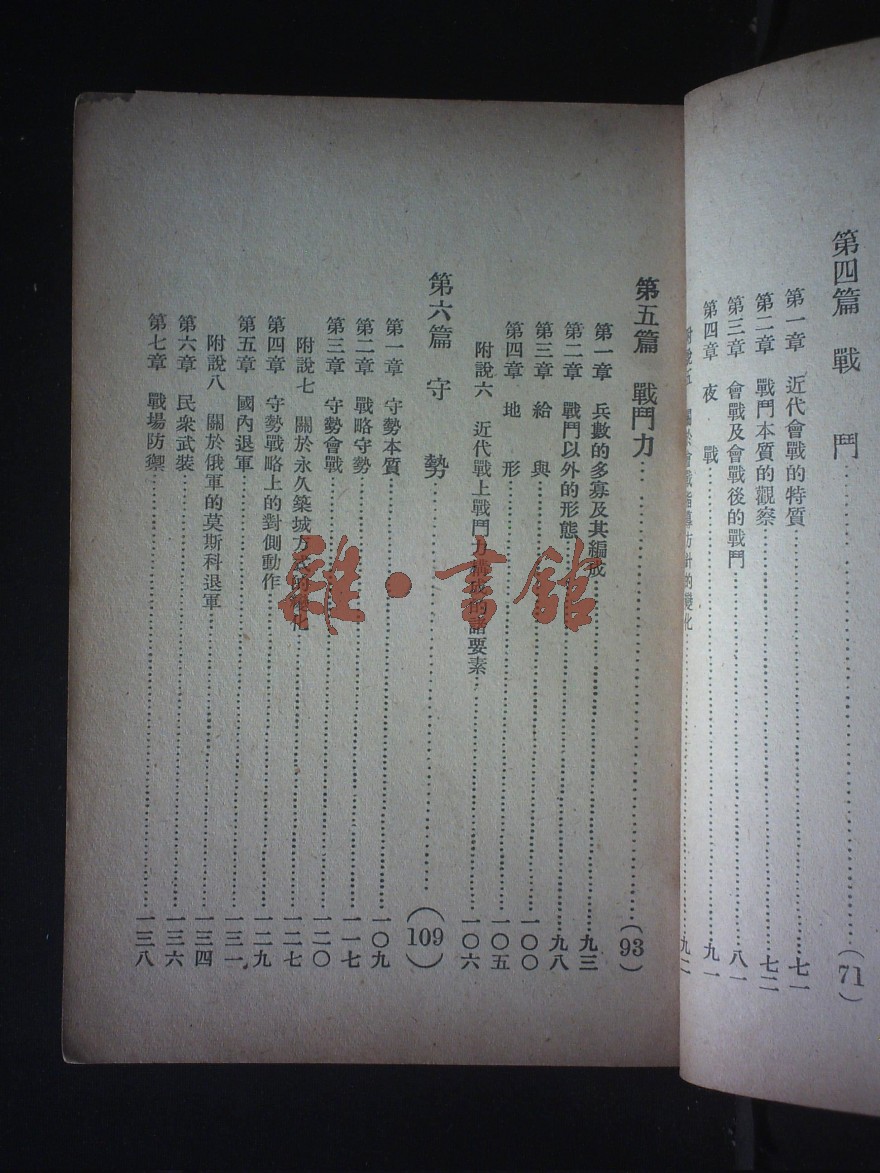 第四篇 戰 鬥 (71)
第一章 近代會戰的特質 七一
第二章 戰鬥本質的觀察 七二
第三章 會戰及會戰後的戰鬥 八一
第四章 夜 戰 九一
附說五 關於會戰指導方針的變化 九二
第五篇 戰鬥力 (93)
第一章 兵數的多寡及其編成 九三
第二章 戰鬥以外的形態 九八
第三章 給 與 一〇〇
第四章 地 形 一〇五
附說六 近代戰上戰鬥力構成的諸要素 一〇六
第六篇 守 勢 (109)
第一章 守勢本質 一〇九
第二章 戰略守勢 一一七
第三章 守勢會戰 一二〇
附說七 關於永久築城方式的變化 一二七
第四章 守勢戰略上的對側動作 一二九
第五章 國內退軍 一三一
附說八 關於俄軍的莫斯科退軍 一三四
第六章 民衆武裝 一三六
第七章 戰場防禦 一三八
雜·書館